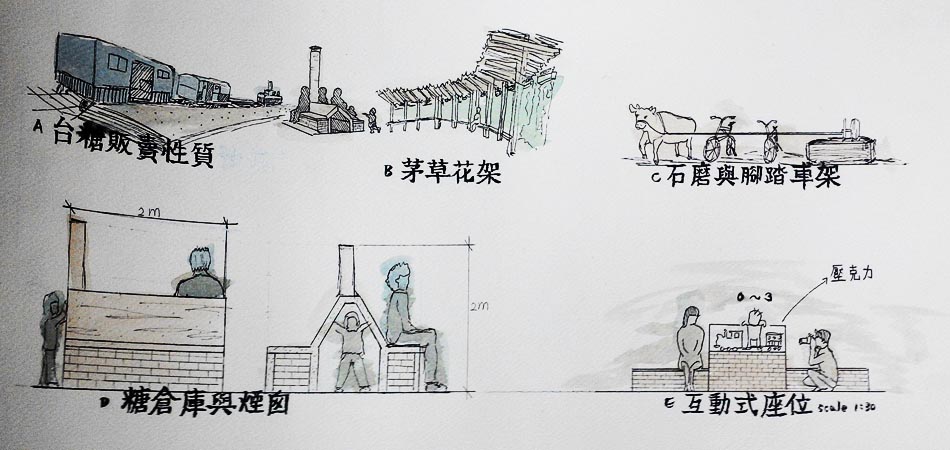 A 台糖販賣性質
B 茅草花架
C 石磨與腳踏車架
2m
2m
壓克力
0~3
D 糖倉庫與煙囪
E 互動式座位 scale 1:30